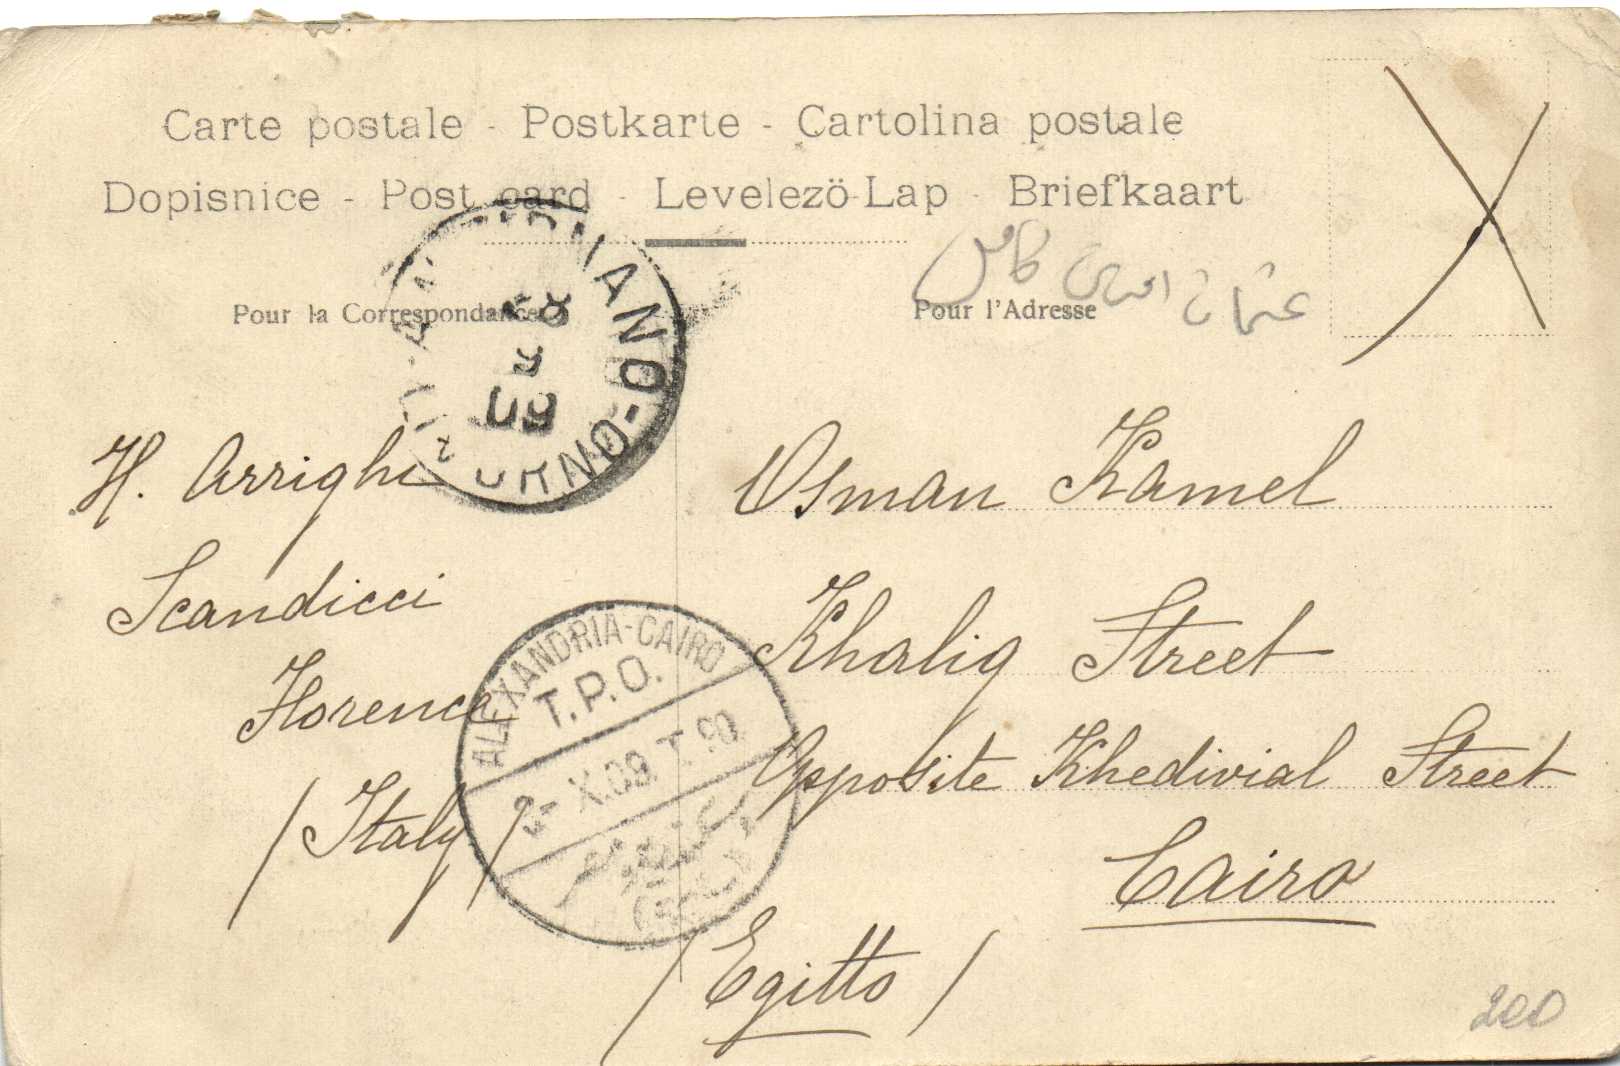 Carte postale - Postkarte - Cartolina postale
Dopisnice - Post card - Levelezö-Lap - Briefkaart
Pour la Correspondance
Pour l'Adresse
عثمان افندى كامل
09
H. Arrighi
Scandicci
Florence
(Italy)
Osman Kamel
Khalig Street
Opposite Khedivial Street
Cairo
(Egitto)
ALEXANDRIA-CAIRO
T.P.O.
X.09.T.
200